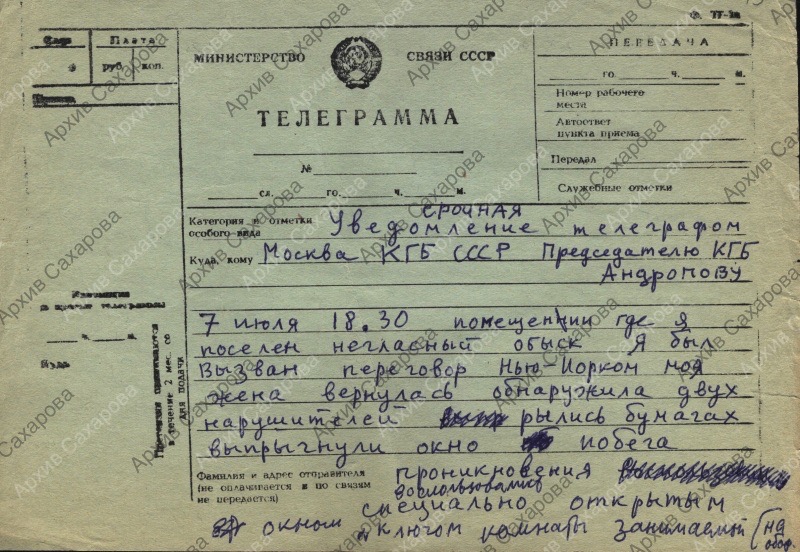 Ф. ТГ-1а
Плата
руб. коп.
МИНИСТЕРСТВО СВЯЗИ СССР
ТЕЛЕГРАММА
№
сл. го. ч. м.
ПЕРЕДАЧА
го. ч. м.
Номер рабочего
места
Автоответ
пункта приема
Передал
Служебные отметки
Категория и отметки
особого вида
СРОЧНАЯ
Уведомление телеграфом
Куда, кому Москва КГБ СССР Председателю КГБ
Андропову
7 июля 18.30 помещении где я
поселен негласный обыск Я был
вызван переговор Нью-Йорком моя
жена вернулась обнаружила двух
нарушителей рылись бумагах
выпрыгнули окно побега
Фамилия и адрес отправителя
(не оплачивается и по связям
не передается)
проникновения
воспользовались
специально открытым
окном ключом комнаты занимаемой (на
обор.
ч. м.
Куда
Претензии принимаются
в течение 2 мес. со
дня подачи
Архив Сахарова